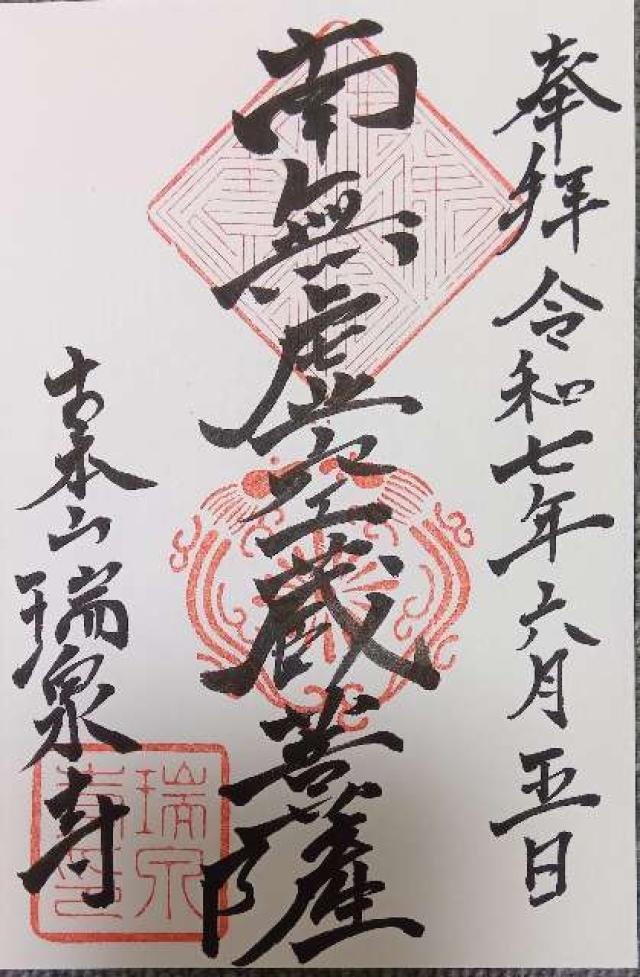 奉拝 令和七年六月五日
南無虚空蔵菩薩
山瑞泉寺
瑞泉